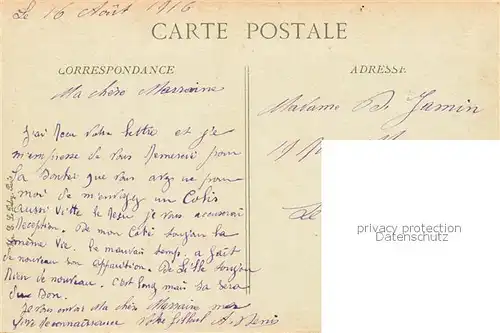 Le 16 Août 1916
CARTE POSTALE
CORRESPONDANCE
ADRESSE
Ma chère Marraine
Madame Jamin
J'ai Recu Votre lettre et je
19
m'empresse de Vous Remercié pour
la Bonté que Vous avez pour
moi de m'envoyez un Colis
aussi Vitte le Reçu je Vous accuserai
Le
Réception. De mon Coté toujour la
même Vie. le mauvais temp a fait
de nouveau son apparition. De toujour
Rien de nouveau. C'est long mais Sa Sera
du Bon.
Je vous envoi Ma chère Marraine mes
Vive Reconnaissance Votre filleul A. Denis
privacy protection
AK-Ansichtskarten.de